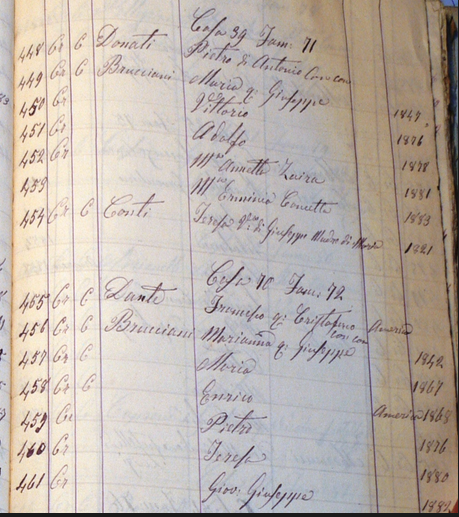 Casa 39 Fam: 71
448 Cr C Donati Pietro di Antonio Con con
449 Cr C Brucciani Maria q: Giuseppe
450 Cr Vittorio 1847
451 Cr Adolfo 1876
452 Cr Mª Annetta Zaira 1878
453 Mª Erminia Concetta 1881
454 Cr C Conti Teresa di Giuseppe Madre di Maria 1883
1821
Casa 70 Fam: 72
455 Cr C Dante Francesco q: Cristoforo America
456 Cr C Brucciani Marianna q: Giuseppe con con
457 Cr C Maria 1842
458 Cr C Enrico 1867
459 Cr Pietro America 1868
460 Cr Teresa 1876
461 Cr Giov: Giuseppe 1880